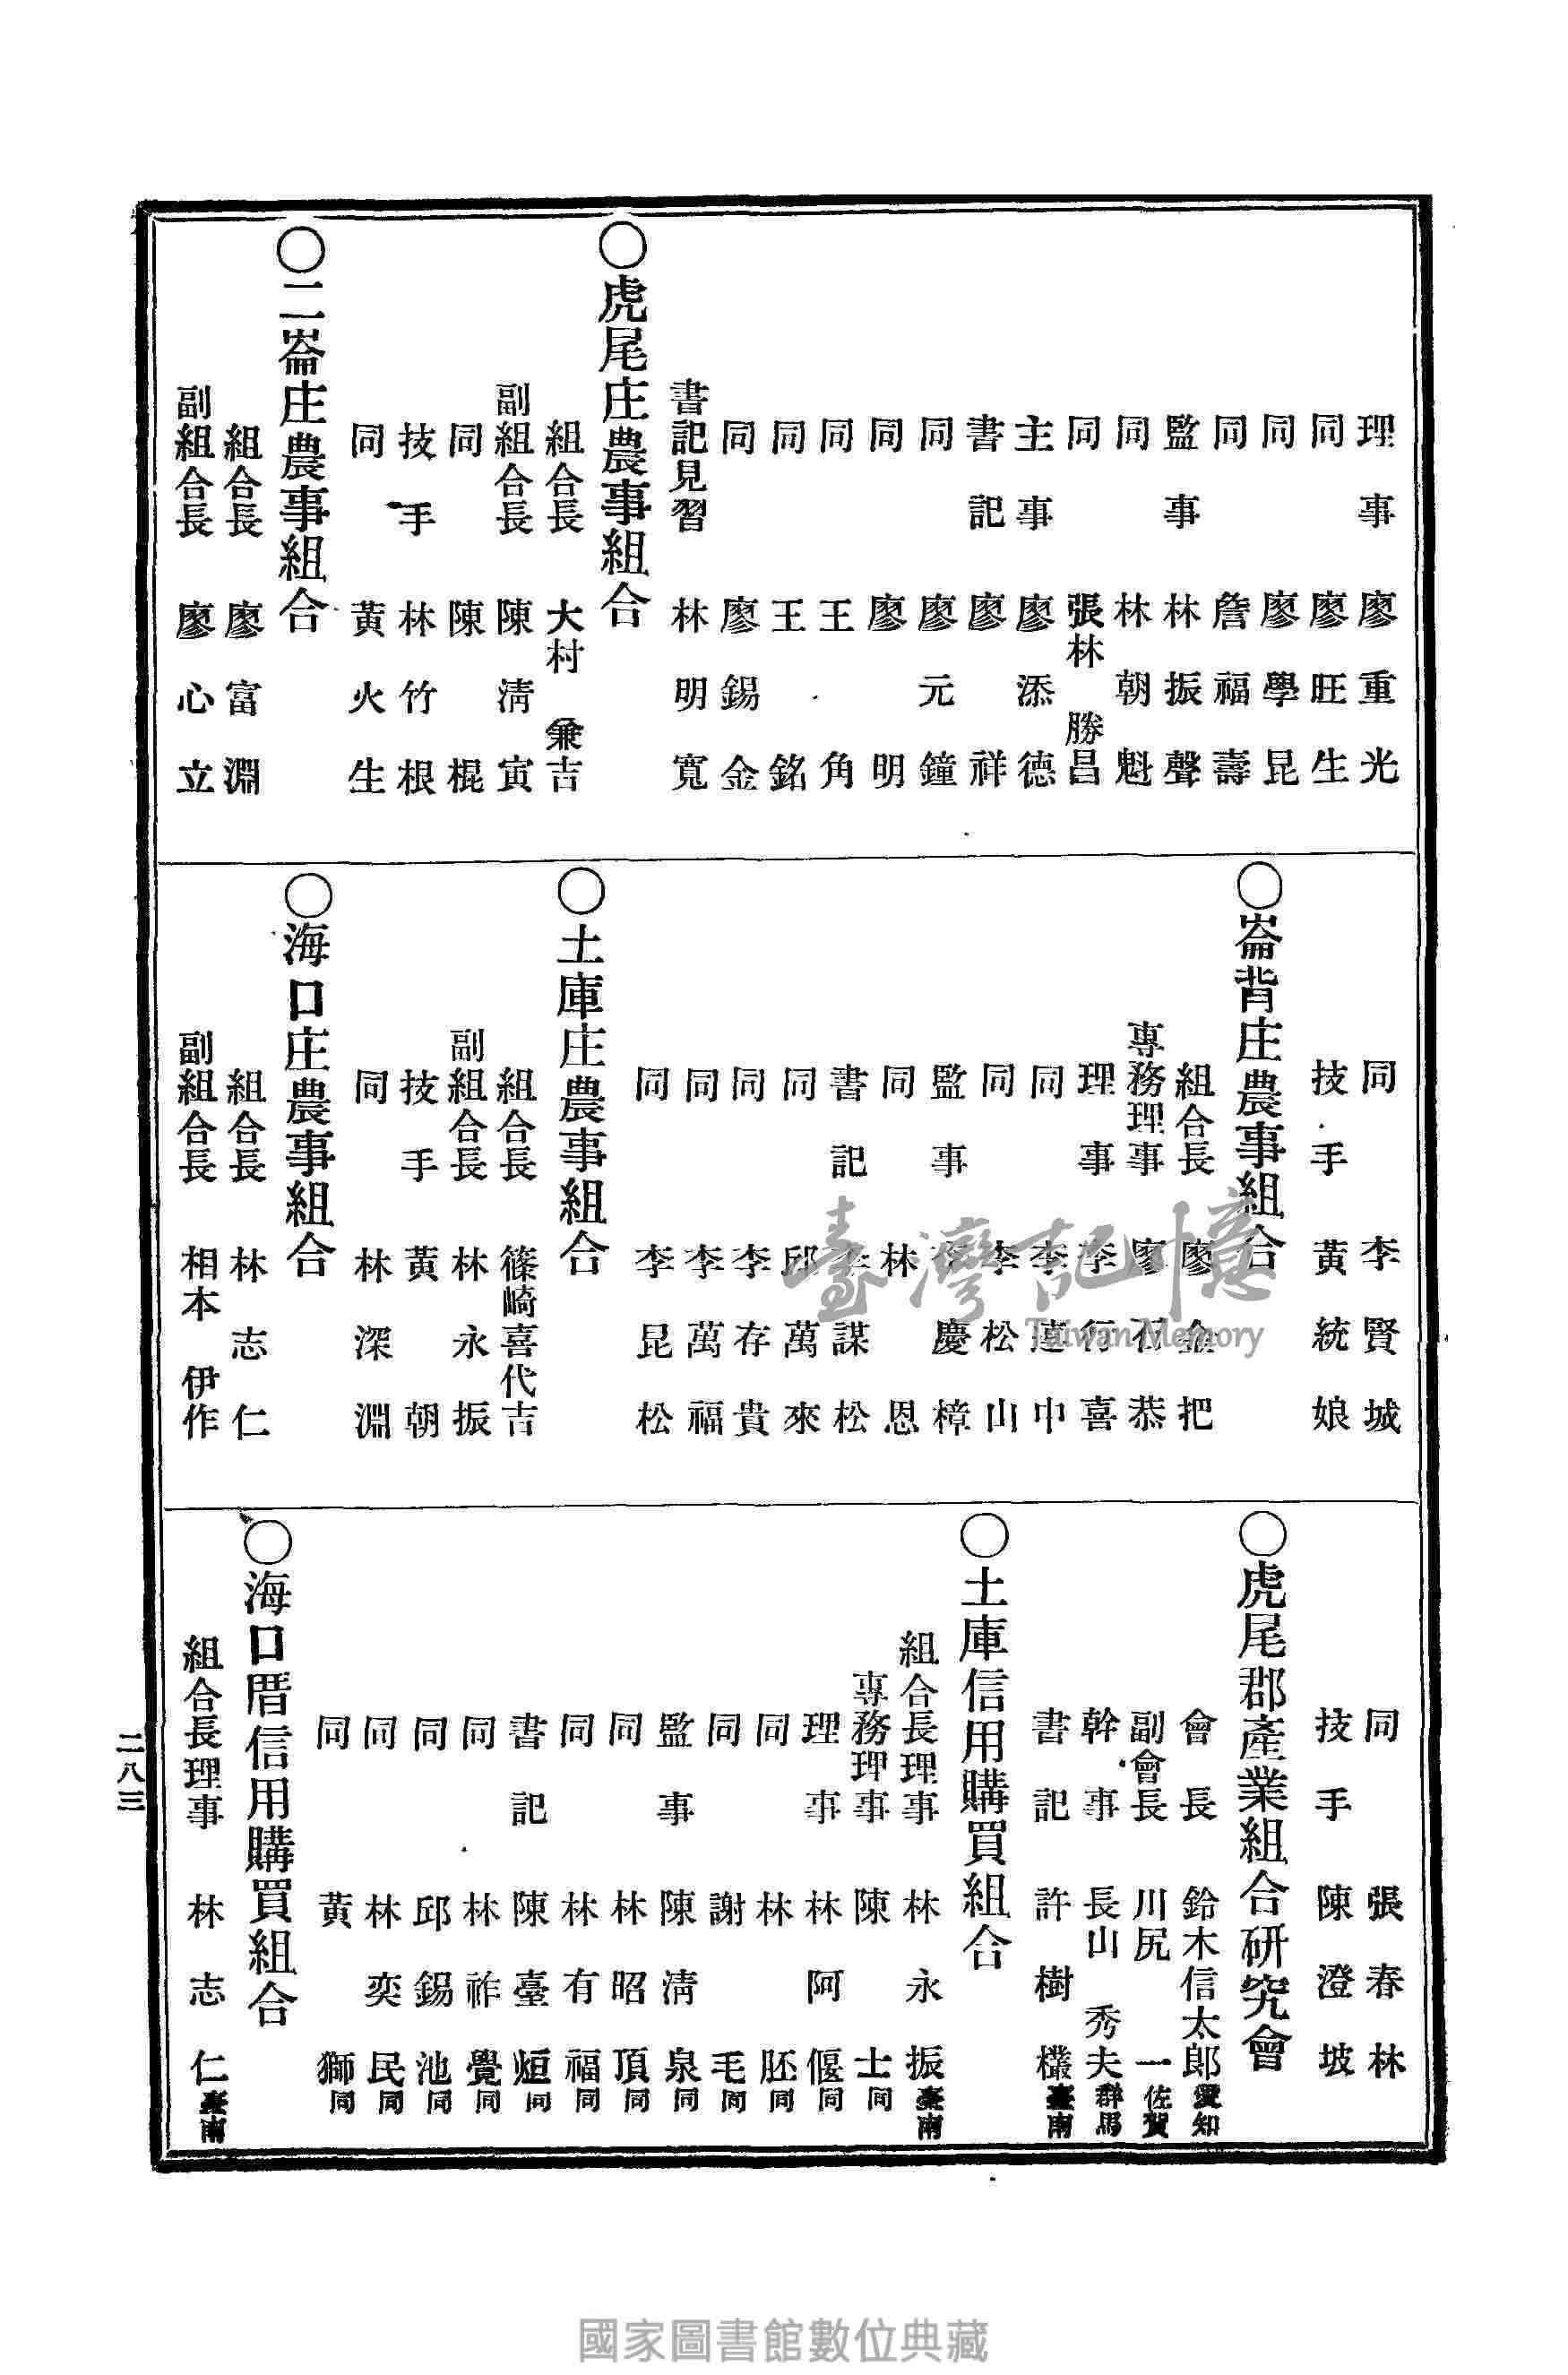 理事 廖重光
同 廖旺生
同 廖學昆
同 詹福壽
監事 林振聲
同 林朝魁
同 張林勝昌
主事 廖添德
書記 廖祥
同 廖元鐘
同 廖明
同 王角
同 王銘
同 廖錫金
書記見習 林明寬
○虎尾庄農事組合
組合長 大村兼吉
副組合長 陳清寅
同 陳棍
技手 林竹根
同 黃火生
○二崙庄農事組合
組合長 廖富淵
副組合長 廖心立
同 李賢城
技手 黃統娘
○崙背庄農事組合
組合長 廖金把
專務理事 廖石恭
理事 李行喜
同 李連中
同 李松山
監事 李慶樟
同 林恩
書記 李謀松
同 邱萬來
同 李存貴
同 李萬福
同 李昆松
○土庫庄農事組合
組合長 篠崎喜代吉
副組合長 林永振
技手 黃朝
同 林深淵
○海口庄農事組合
組合長 林志仁
副組合長 相本伊作
同 張春林
技手 陳澄坡
○虎尾郡產業組合研究會
會長 鈴木信太郎 愛知
副會長 川尻一 佐賀
幹事 長山秀夫 群馬
書記 許樹欉 臺南
○土庫信用購買組合
組合長理事 林永振 臺南
專務理事 陳士 同
理事 林阿偃 同
同 林胚 同
同 謝毛 同
監事 陳清泉 同
同 林昭頂 同
同 林有福 同
書記 陳臺烜 同
同 林祚覺 同
同 邱錫池 同
同 林奕民 同
同 黃獅 同
○海口厝信用購買組合
組合長理事 林志仁 臺南
二八三
臺灣記憶
Taiwan Memory
國家圖書館數位典藏